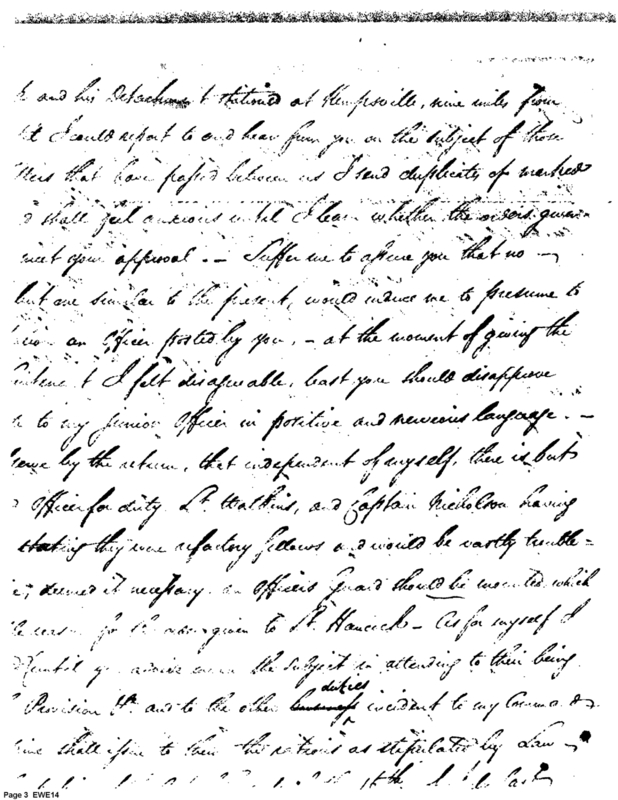 and his Detachment stationed at Kempsville, nine miles from
I could report to and hear from you on the subject of those
that have passed between us I send duplicates of marked
shall feel anxious until I learn whether the orders given
meet your approval. — Suffer me to assure you that no —
but one similar to the present, would induce me to presume to
an Officer posted by you, — at the moment of giving the
I felt disagreeable, least you should disapprove
to my junior Officer in positive and language. —
by the return, that independent of myself, there is but
Officer for duty Lt. Watkins, and Captain Nicholson having
stating they were refactory fellows and would be vastly trouble=
deemed it necessary an Officers Guard should be mounted which
given to Lt. Hancock — As for myself I
until on the subject in attending to their being
duties
Provision &c. and to the other incident to my Command
shall issue to them the rations as stipulated by Law
Page 3 EWE14